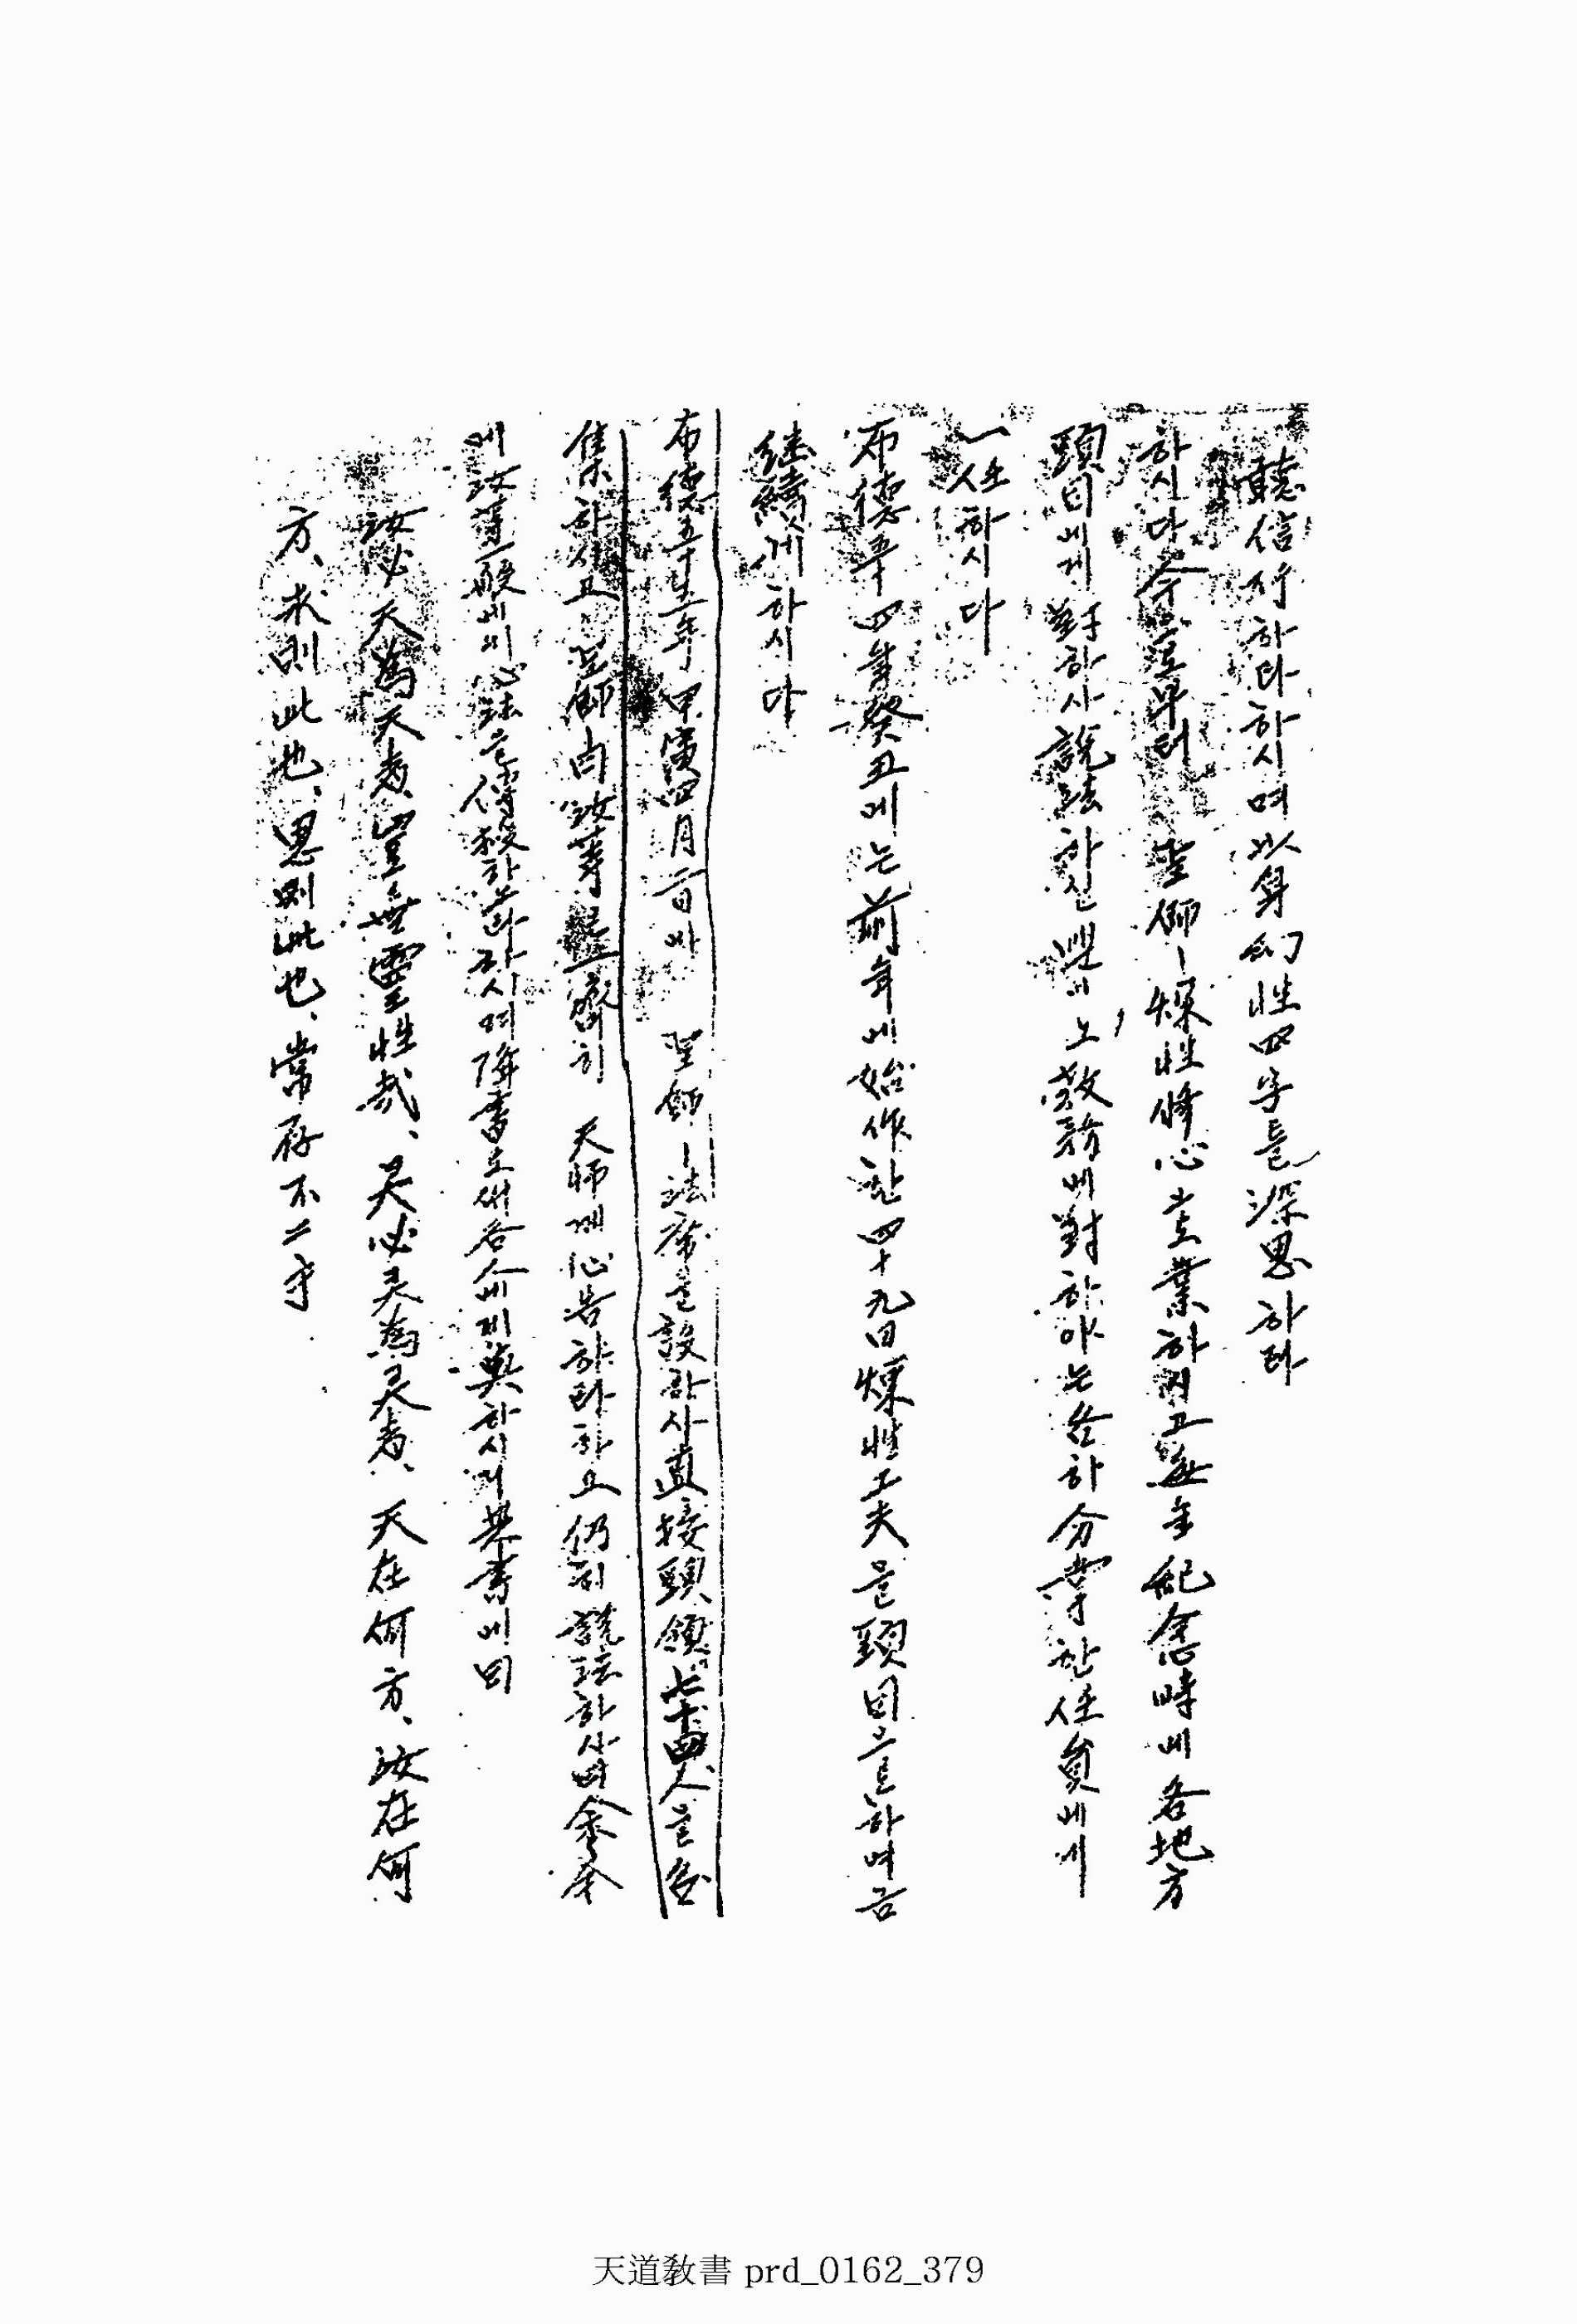 聽信行하라하시며 以身幻性四字를 深思하라
하시다 今年브터 聖師ㅣ 煉性修心 主業하시고 每年 紀念時에 各地方
頭目에게 對하사 說法하실 뿐이오 敎務에 對하야는 各히 分掌한 任員에게
一任하시다
布德五十四年癸丑에는 前年에 始作한 四十九日 煉性工夫를 頭目으로하여금
繼續케하시다
布德五十五年甲寅四月二日에 聖師ㅣ 法席을 設하사 直接頭領七十四人을 召
集하시고 聖師曰 汝等은 一齊히 天師께 心告하라하고 仍히 說法하사曰 余今
에 汝等一般에게 心法을 傳授하노라하시며 降書도써 各人에게 與하시며 其書에 曰
汝必天爲天者、豈無靈性哉、灵必灵爲灵者、天在何方、汝在何
方、求則此也、思則此也、常存不二乎
天道敎書 prd_0162_379